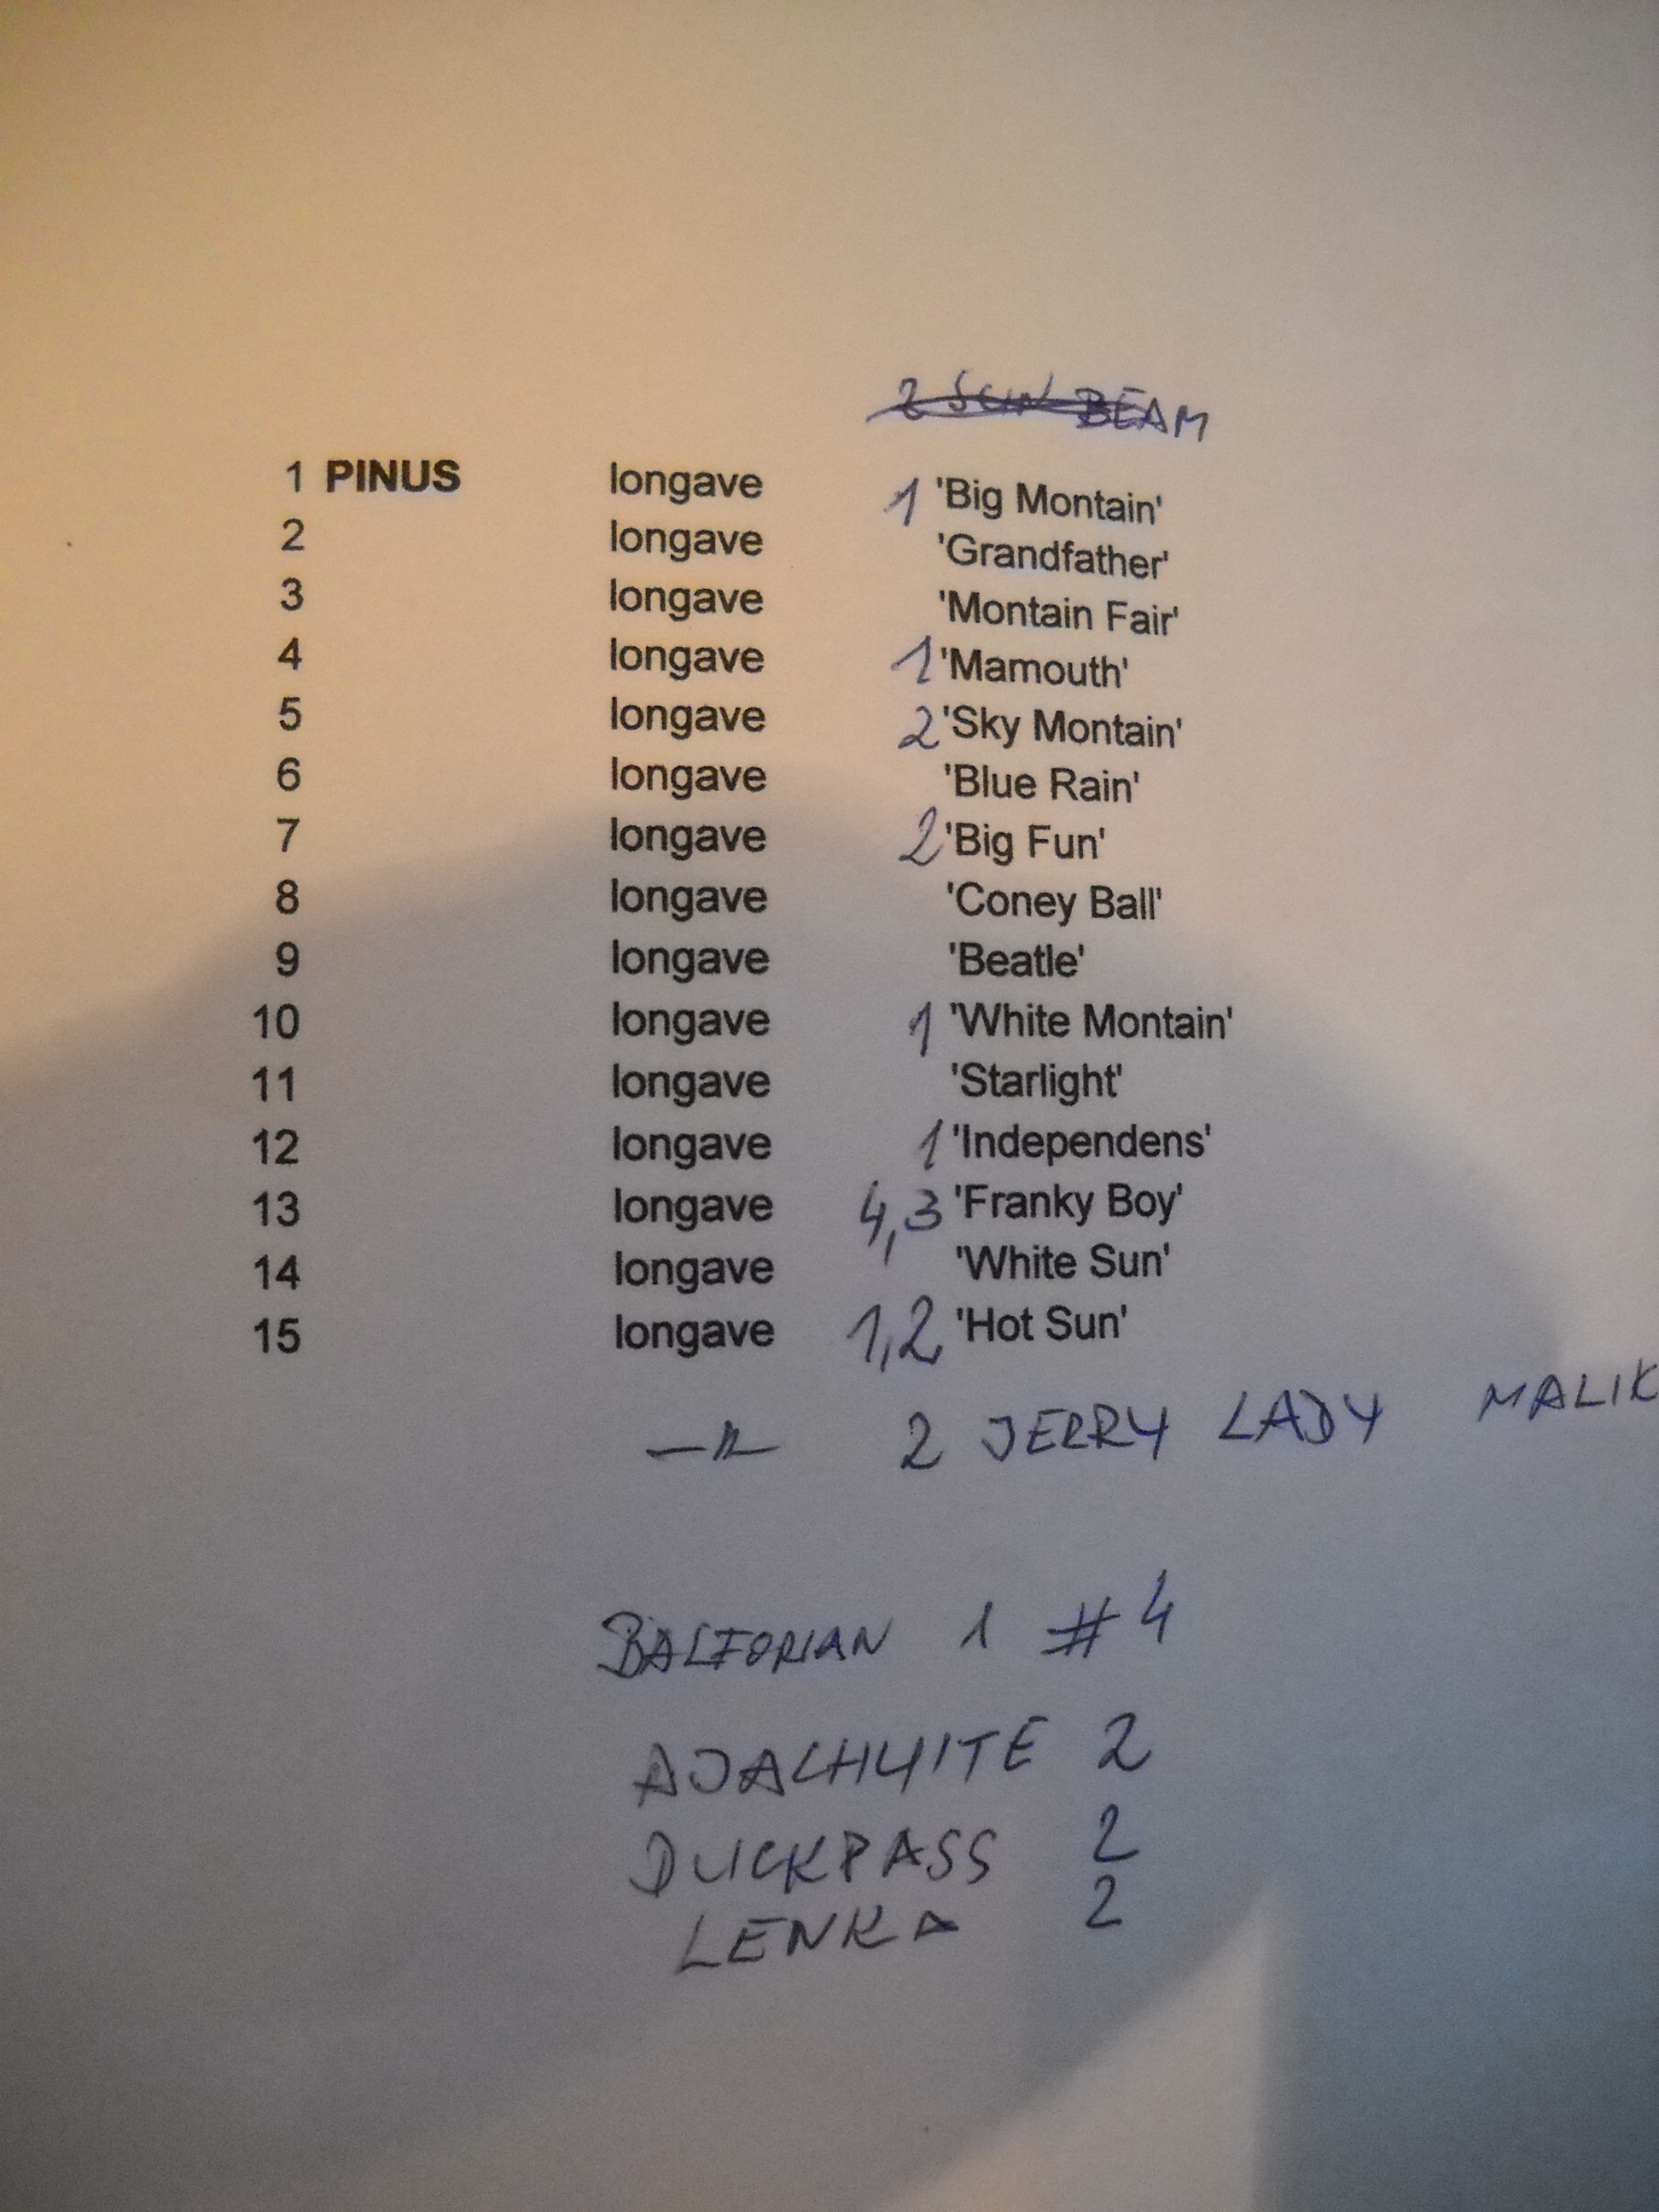 2 SUN BEAM
1 PINUS longave 1 'Big Montain'
2 longave 'Grandfather'
3 longave 'Montain Fair'
4 longave 1 'Mamouth'
5 longave 2 'Sky Montain'
6 longave 'Blue Rain'
7 longave 2 'Big Fun'
8 longave 'Coney Ball'
9 longave 'Beatle'
10 longave 1 'White Montain'
11 longave 'Starlight'
12 longave 1 'Independens'
13 longave 4,3 'Franky Boy'
14 longave 'White Sun'
15 longave 1,2 'Hot Sun'
—"— 2 JERRY LADY MALIK
BALFORIAN 1 # 4
2
DUCKPASS 2
LENKA 2